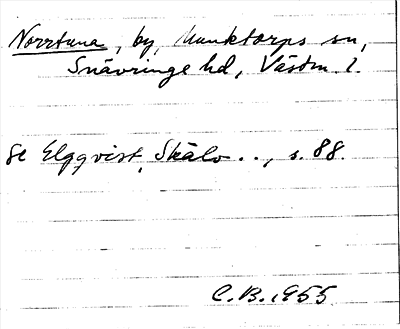 Norrtuna, by, Munktorps sn,
Snävringe hd, Västm. l.
Se Elgqvist, Skälv . . , s. 88.
C.B. 1955